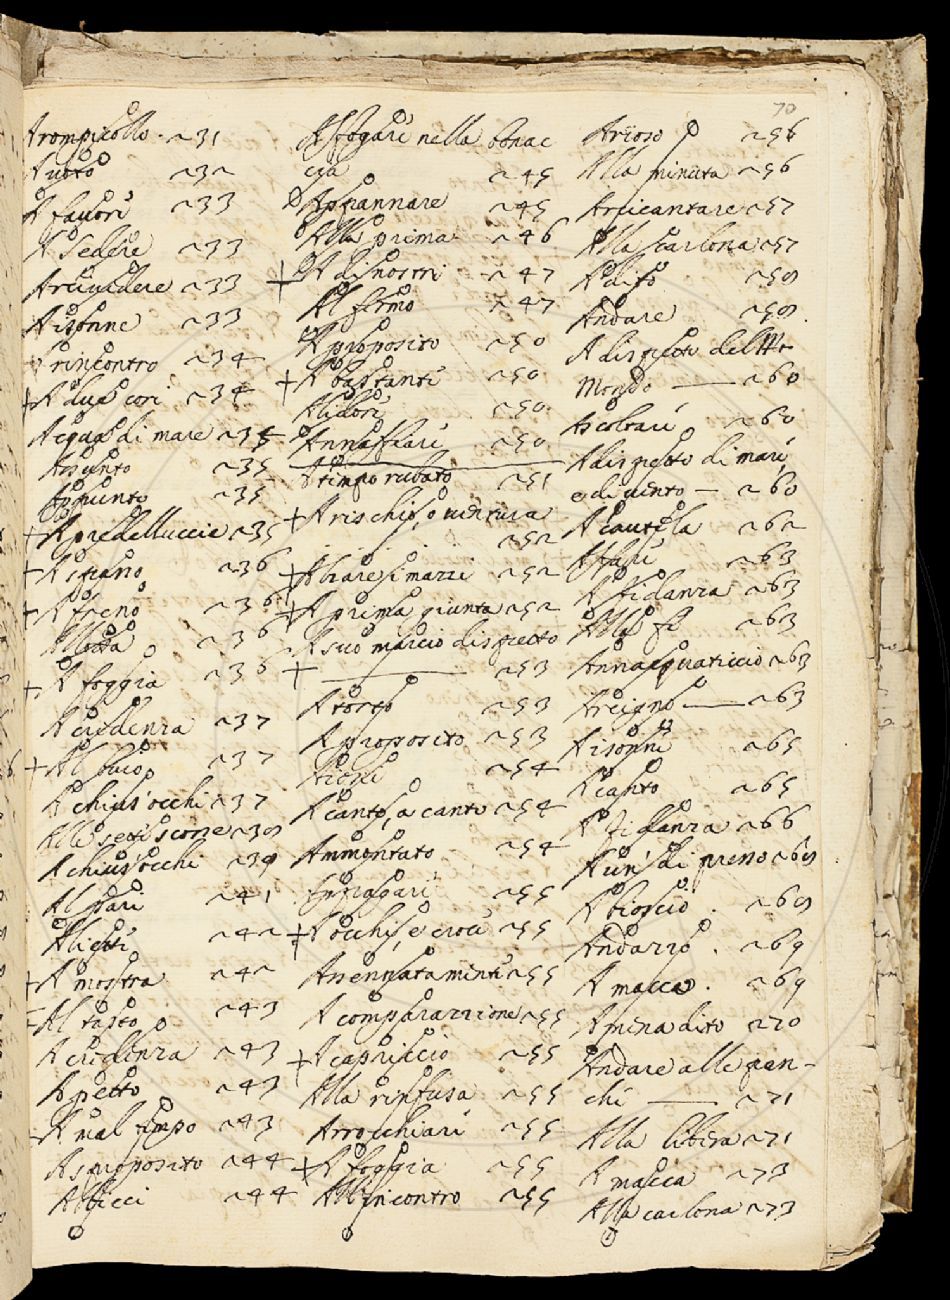 70
Arompicollo. ~31
Auoto ~32
A fauori ~33
A Sedere ~33
Arciuedere ~33
Aisonne ~33
rincontro ~34
+ A due cori ~34
Acqua di mare ~34
Assunto ~35
Appunto ~35
+ A predelluccie ~35
+ A spano ~36
+ A freno ~36
Allotta ~36
+ A foggia ~36
A credenza ~37
+ Al buio ~37
A chius'occhi ~37
Alle sette scorse ~39
A chius'occhi ~39
Al pari ~41
Alieti ~42
+ A mostra ~42
Al tasto ~43
A credenza ~43
A petto ~43
A mal tempo ~43
A sproposito ~44
A bicci ~44
Asfogare nella bonac
cia ~45
Appannare ~45
Alla prima ~46
+ A dinostri ~47
Al fermo ~47
A proposito ~50
+ A bastanti ~50
Alidori ~50
Annaffiari ~50
A tempo rubato ~51
+ A rischio, o uentura
~52
+ A biaresimazzi ~52
+ A prima giunta ~52
A suo marcio dispetto
+ —— ~53
A torto ~53
A proposito ~53
Ationi ~54
A canto, a canto ~54
Ammontato ~54
~55
+ A occhi, e croce ~55
Assennataminti ~55
A comparazzione ~55
+ A capriccio ~55
Alla rinfusa ~55
Arrocchiari ~55
+ A foggia ~55
All'incontro ~55
Arioso ~56
Alla minuta ~56
Arcicantare ~57
Alla scarlona ~57
A difo ~59
Andare ~59.
A dispetto del
Mondo —— ~60
Ascoltari ~60
A dispetto di mari,
e di uento — ~60
A cautela ~62
Affari ~63
A fidanza ~63
Alla fe ~63
Annasquaticcio ~63
Arcigno —— ~63
Aisonne ~65
A canto ~65
A fidanza ~66
A un' di presso ~69
A bioscio . ~69
Andazzo . ~69
A macca . ~69
A mena dito ~70
Andare alle pan-
che —— ~71
Alla libera ~71
A macca ~73
Alla carlona ~73